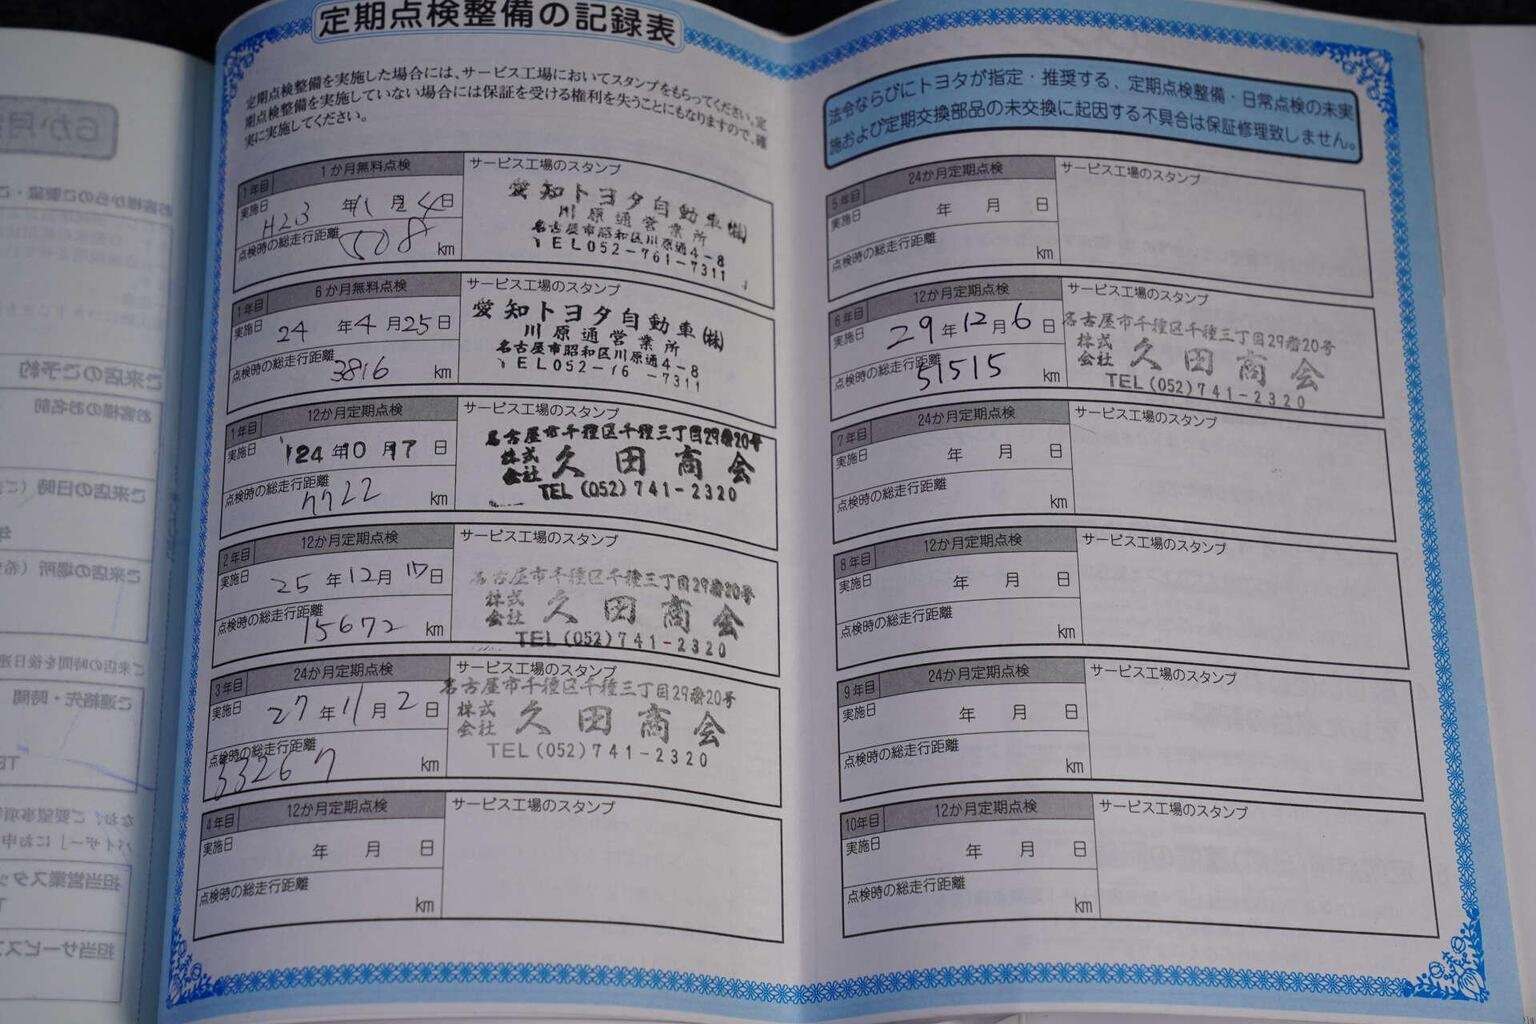 定期点検整備の記録表
定期点検整備を実施した場合には、サービス工場においてスタンプをもらってください。定
期点検整備を実施していない場合には保証を受ける権利を失うことにもなりますので、確
実に実施してください。
1年目 1か月無料点検
実施日 H23 年 1 月 4 日
点検時の総走行距離 508 km
サービス工場のスタンプ
愛知トヨタ自動車㈱
川原通営業所
名古屋市昭和区川原通4-8
TEL052-761-7311
1年目 6か月無料点検
実施日 24 年 4 月 25 日
点検時の総走行距離 3816 km
サービス工場のスタンプ
愛知トヨタ自動車㈱
川原通営業所
名古屋市昭和区川原通4-8
TEL052-76 -7311
1年目 12か月定期点検
実施日 '24 年 10 月 17 日
点検時の総走行距離 7722 km
サービス工場のスタンプ
名古屋市千種区千種三丁目29番20号
株式会社 久田商会
TEL (052) 741-2320
2年目 12か月定期点検
実施日 25 年 12 月 17 日
点検時の総走行距離 15672 km
サービス工場のスタンプ
名古屋市千種区千種三丁目29番20号
株式会社 久田商会
TEL (052) 741-2320
3年目 24か月定期点検
実施日 27 年 11 月 2 日
点検時の総走行距離 33267 km
サービス工場のスタンプ
名古屋市千種区千種三丁目29番20号
株式会社 久田商会
TEL (052) 741-2320
4年目 12か月定期点検
実施日 年 月 日
点検時の総走行距離 km
サービス工場のスタンプ
法令ならびにトヨタが指定・推奨する、定期点検整備・日常点検の未実
施および定期交換部品の未交換に起因する不具合は保証修理致しません。
5年目 24か月定期点検
実施日 年 月 日
点検時の総走行距離 km
サービス工場のスタンプ
6年目 12か月定期点検
実施日 29 年 12 月 6 日
点検時の総走行距離 51515 km
サービス工場のスタンプ
名古屋市千種区千種三丁目29番20号
株式会社 久田商会
TEL (052) 741-2320
7年目 24か月定期点検
実施日 年 月 日
点検時の総走行距離 km
サービス工場のスタンプ
8年目 12か月定期点検
実施日 年 月 日
点検時の総走行距離 km
サービス工場のスタンプ
9年目 24か月定期点検
実施日 年 月 日
点検時の総走行距離 km
サービス工場のスタンプ
10年目 12か月定期点検
実施日 年 月 日
点検時の総走行距離 km
サービス工場のスタンプ